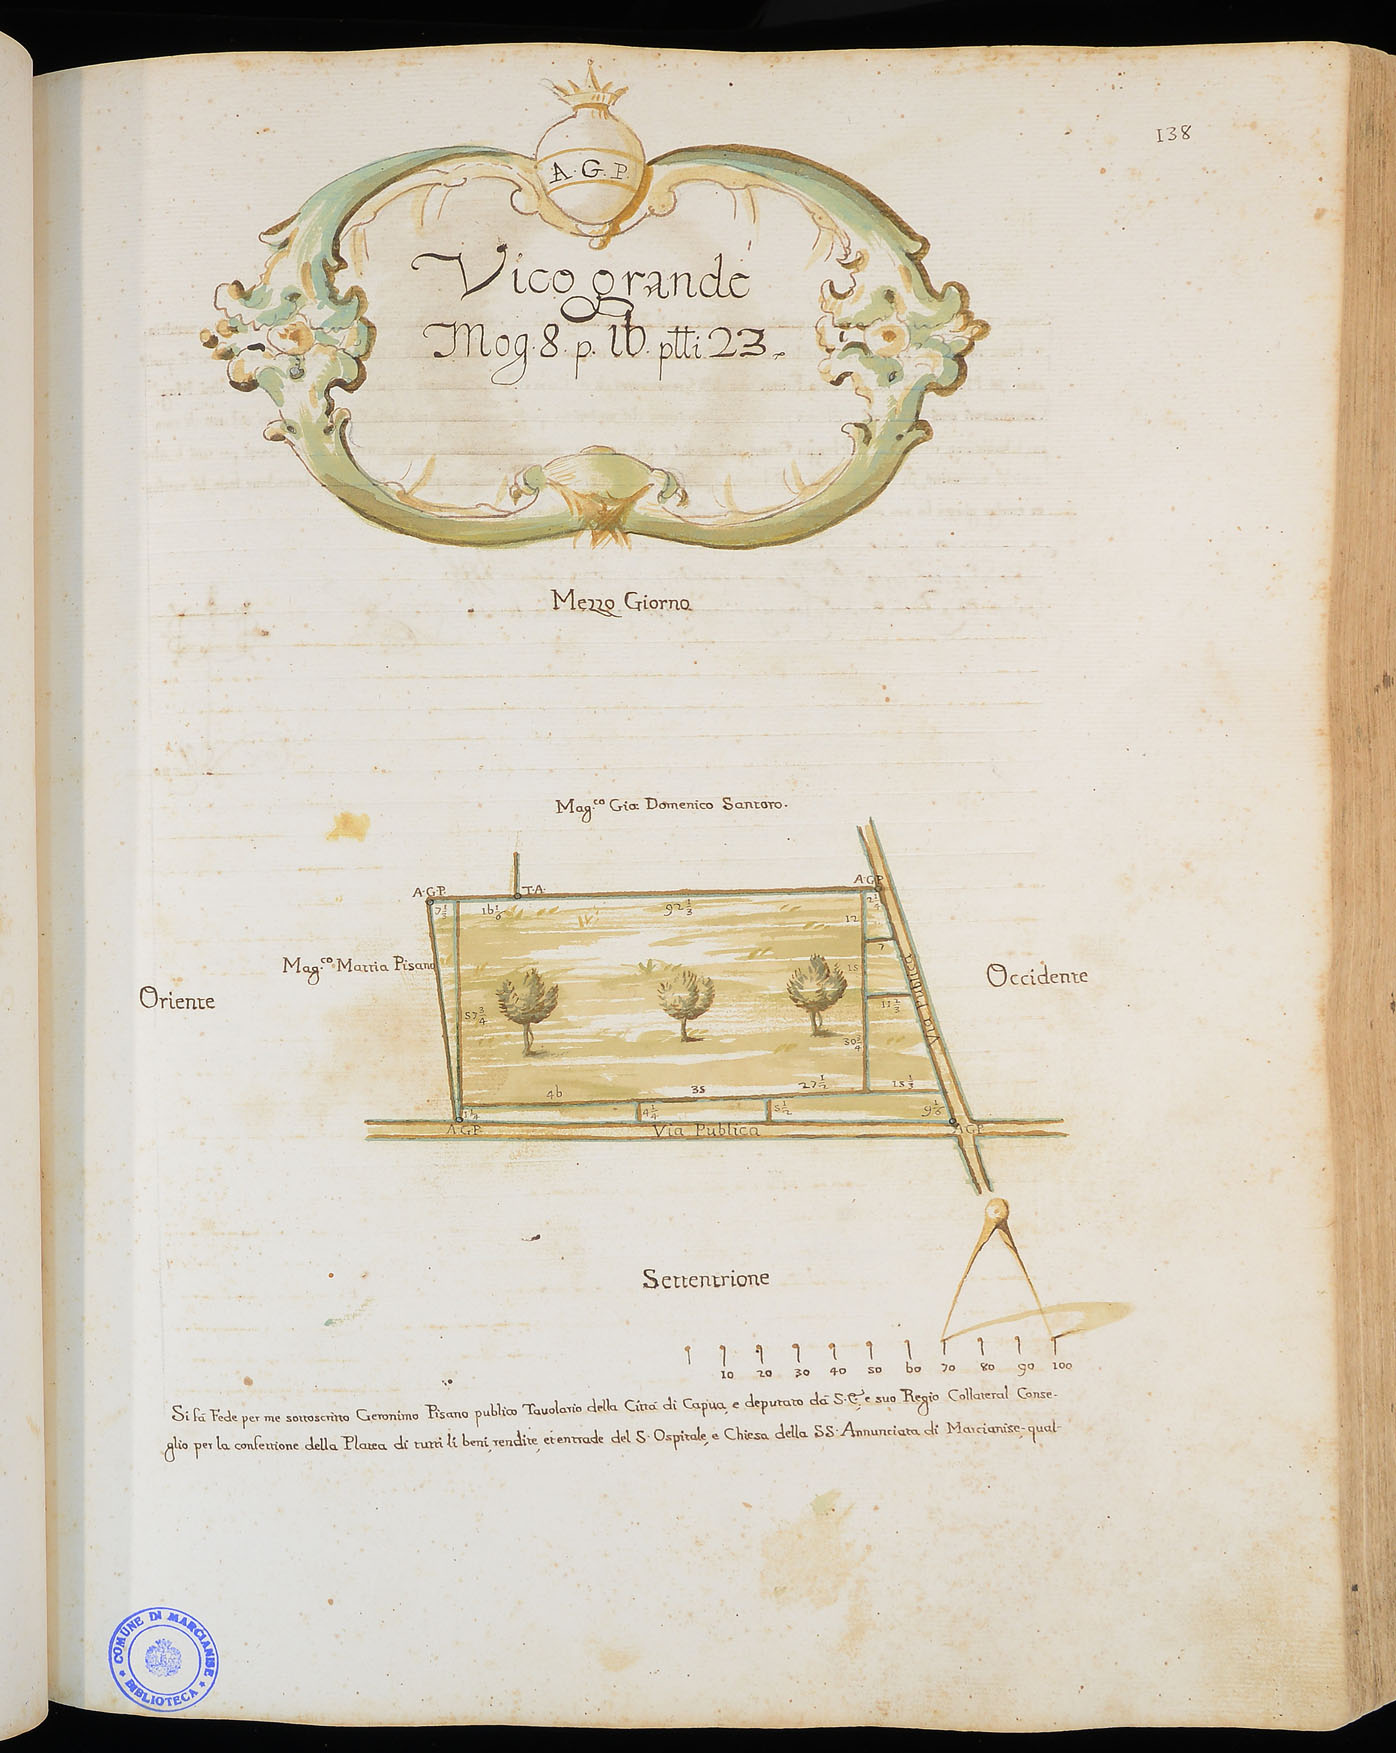 138
A. G. P.
Vico grande
Mog. 8. p. 1b. ptti 23.
Mezzo Giorno
Mag.co Gio: Domenico Santoro.
A.G.P.
T.A.
A.G.P.
1b 1/6
92 1/3
2 1/4
12
7
Mag.co Mattia Pisano
Oriente
Occidente
Via Publica
15
11 2/3
57 3/4
30 3/4
4b
35
27 1/2
15 1/3
1 1/4
4 1/4
5 1/2
9 1/6
A.G.P.
Via Publica
A.G.P.
Settentrione
10 20 30 40 50 b0 70 80 90 100
Si fà Fede per me sottoscritto Geronimo Pisano publico Tavolario della Città di Capua, e deputato dà S. E. e suo Regio Collateral Conse-
glio per la confettione della Platea di tutti li beni, rendite, et entrade del S. Ospitale, e Chiesa della SS. Annunciata di Marcianise, qual-
COMUNE DI MARCIANISE
BIBLIOTECA